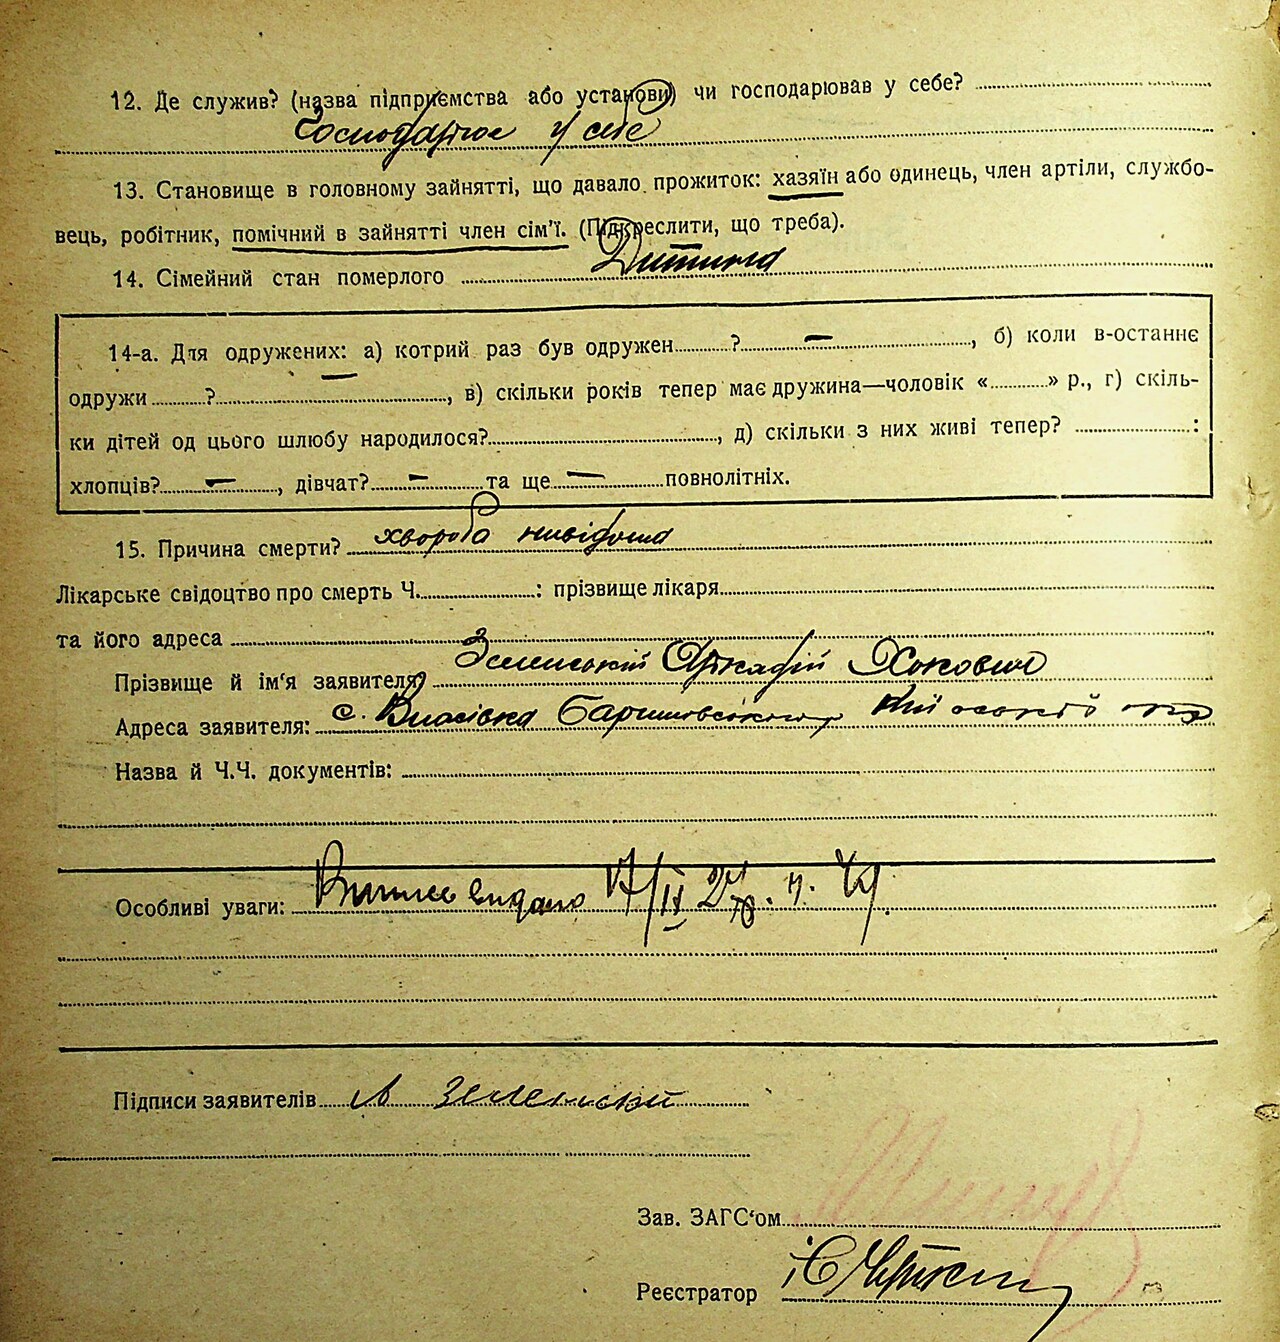 12. Де служив? (назва підприємства або установи) чи господарював у себе?
Господарює у себе
13. Становище в головному зайнятті, що давало прожиток: хазяїн або одинець, член артіли, службо-
вець, робітник, помічний в зайнятті член сім'ї. (Підкреслити, що треба).
14. Сімейний стан померлого Дитина
14-а. Для одружених: а) котрий раз був одружен ? — , б) коли в-останнє
одружи ? — , в) скільки років тепер має дружина—чоловік « » р., г) скіль-
ки дітей од цього шлюбу народилося? , д) скільки з них живі тепер? :
хлопців? — , дівчат? — та ще — повнолітніх.
15. Причина смерти? хвороба невідома
Лікарське свідоцтво про смерть Ч. : прізвище лікаря
та його адреса
Прізвище й ім'я заявителя Зеленський Аркадій
Адреса заявителя: с. Власівка Баришовського
Назва й Ч.Ч. документів:
Особливі уваги: видано
Підписи заявителів А Зеленский
Зав. ЗАГС'ом
Реєстратор